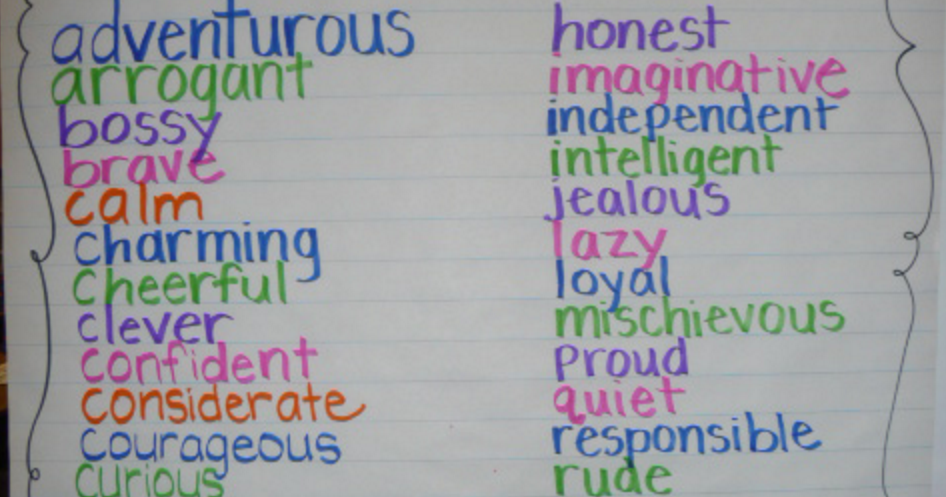 adventurous
arrogant
bossy
brave
calm
charming
Cheerful
clever
confident
considerate
courageous
curious
honest
imaginative
independent
intelligent
jealous
lazy
loyal
mischievous
proud
quiet
responsible
rude